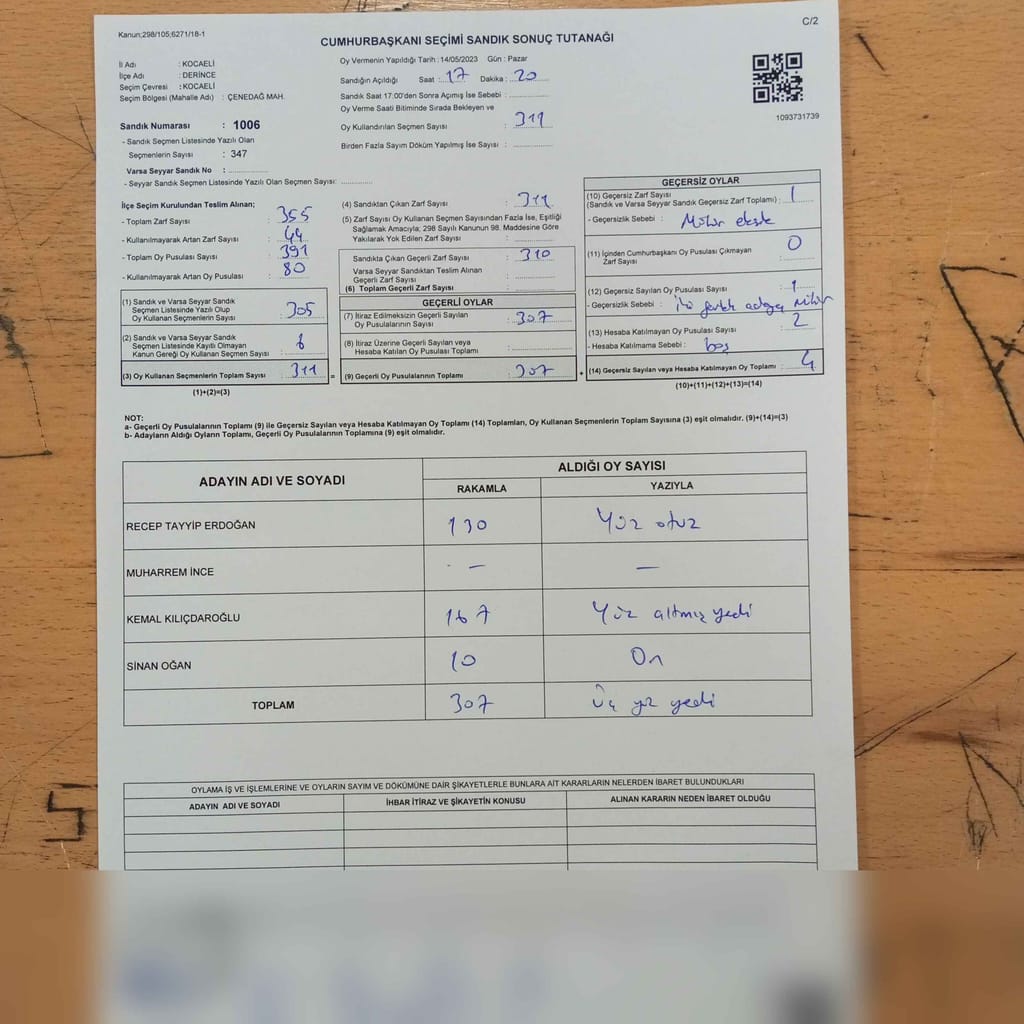 Kanun;298/105;6271/18-1
C/2
CUMHURBAŞKANI SEÇİMİ SANDIK SONUÇ TUTANAĞI
İl Adı : KOCAELİ
İlçe Adı : DERİNCE
Seçim Çevresi : KOCAELİ
Seçim Bölgesi (Mahalle Adı) : ÇENEDAĞ MAH.
Oy Vermenin Yapıldığı Tarih : 14/05/2023 Gün : Pazar
Sandığın Açıldığı Saat : 17 Dakika : 20
Sandık Saat 17:00'den Sonra Açımış İse Sebebi :
Oy Verme Saati Bitiminde Sırada Bekleyen ve
Oy Kullandırılan Seçmen Sayısı : 311
Birden Fazla Sayım Döküm Yapılmış İse Sayısı :
1093731739
Sandık Numarası : 1006
- Sandık Seçmen Listesinde Yazılı Olan
Seçmenlerin Sayısı : 347
Varsa Seyyar Sandık No :
- Seyyar Sandık Seçmen Listesinde Yazılı Olan Seçmen Sayısı:
İlçe Seçim Kurulundan Teslim Alınan;
- Toplam Zarf Sayısı : 355
- Kullanılmayarak Artan Zarf Sayısı : 44
- Toplam Oy Pusulası Sayısı : 391
- Kullanılmayarak Artan Oy Pusulası : 80
(1) Sandık ve Varsa Seyyar Sandık
Seçmen Listesinde Yazılı Olup
Oy Kullanan Seçmenlerin Sayısı : 305
(2) Sandık ve Varsa Seyyar Sandık
Seçmen Listesinde Kayıtlı Olmayan
Kanun Gereği Oy Kullanan Seçmen Sayısı : 6
(3) Oy Kullanan Seçmenlerin Toplam Sayısı : 311 =
(1)+(2)=(3)
(4) Sandıktan Çıkan Zarf Sayısı : 311
(5) Zarf Sayısı Oy Kullanan Seçmen Sayısından Fazla İse, Eşitliği
Sağlamak Amacıyla; 298 Sayılı Kanunun 98. Maddesine Göre
Yakılarak Yok Edilen Zarf Sayısı :
Sandıkta Çıkan Geçerli Zarf Sayısı : 310
Varsa Seyyar Sandıktan Teslim Alınan
Geçerli Zarf Sayısı :
(6) Toplam Geçerli Zarf Sayısı :
GEÇERLİ OYLAR
(7) İtiraz Edilmeksizin Geçerli Sayılan
Oy Pusulasının Sayısı : 307
(8) İtiraz Üzerine Geçerli Sayılan veya
Hesaba Katılan Oy Pusulası Toplamı :
(9) Geçerli Oy Pusulalarının Toplamı : 307 +
GEÇERSİZ OYLAR
(10) Geçersiz Zarf Sayısı
(Sandık ve Varsa Seyyar Sandık Geçersiz Zarf Toplamı) : 1
- Geçersizlik Sebebi : Mühür eksik
(11) İçinden Cumhurbaşkanı Oy Pusulası Çıkmayan
Zarf Sayısı : 0
(12) Geçersiz Sayılan Oy Pusulası Sayısı : 1
- Geçersizlik Sebebi : İki farklı adaya mühür
(13) Hesaba Katılmayan Oy Pusulası Sayısı : 2
- Hesaba Katılmama Sebebi : boş
(14) Geçersiz Sayılan veya Hesaba Katılmayan Oy Toplamı : 4
(10)+(11)+(12)+(13)=(14)
NOT:
a- Geçerli Oy Pusulalarının Toplamı (9) ile Geçersiz Sayılan veya Hesaba Katılmayan Oy Toplamı (14) Toplamları, Oy Kullanan Seçmenlerin Toplam Sayısına (3) eşit olmalıdır. (9)+(14)=(3)
b- Adayların Aldığı Oyların Toplamı, Geçerli Oy Pusulalarının Toplamına (9) eşit olmalıdır.
ADAYIN ADI VE SOYADI ALDIĞI OY SAYISI
RAKAMLA YAZIYLA
RECEP TAYYİP ERDOĞAN 130 Yüz otuz
MUHARREM İNCE - —
KEMAL KILIÇDAROĞLU 167 Yüz altmış yedi
SİNAN OĞAN 10 On
TOPLAM 307 Üç yüz yedi
OYLAMA İŞ VE İŞLEMLERİNE VE OYLARIN SAYIM VE DÖKÜMÜNE DAİR ŞİKAYETLERLE BUNLARA AİT KARARLARIN NELERDEN İBARET BULUNDUKLARI
ADAYIN ADI VE SOYADI İHBAR İTİRAZ VE ŞİKAYETİN KONUSU ALINAN KARARIN NEDEN İBARET OLDUĞU